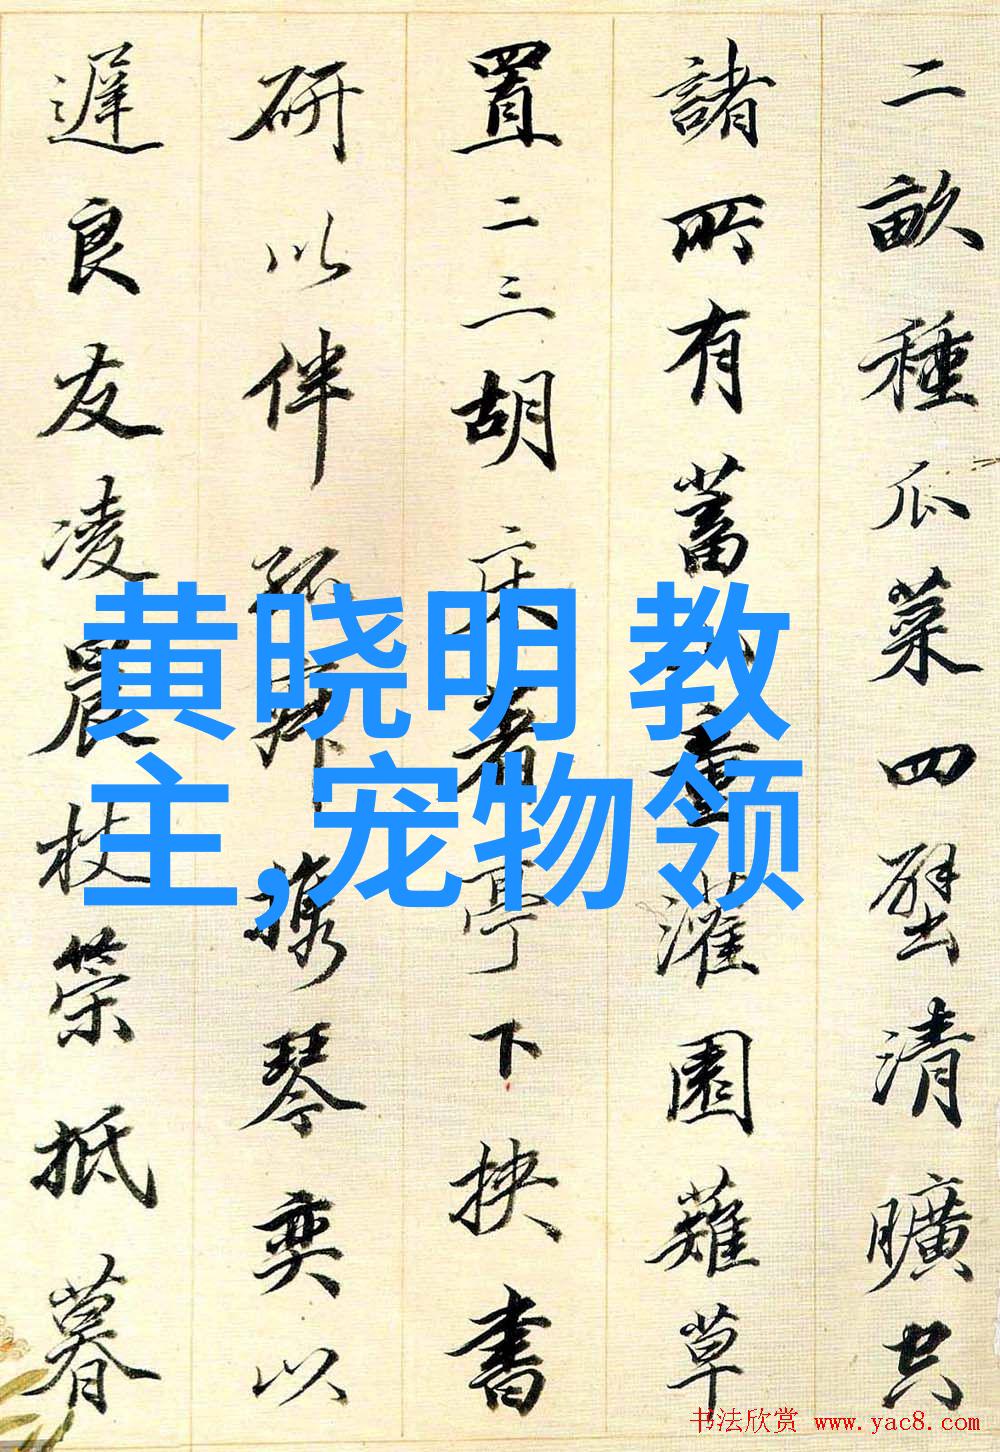 二畝種瓜菜四壁清曠空
諸所有蓄山童灌園薙草
置二三胡床著亭下挾書
研以伴孤寂携琴奕以
遲良友凌晨杖策抵暮
黄晓明 教
主,宠物领
书法欣赏 www.yac8.com